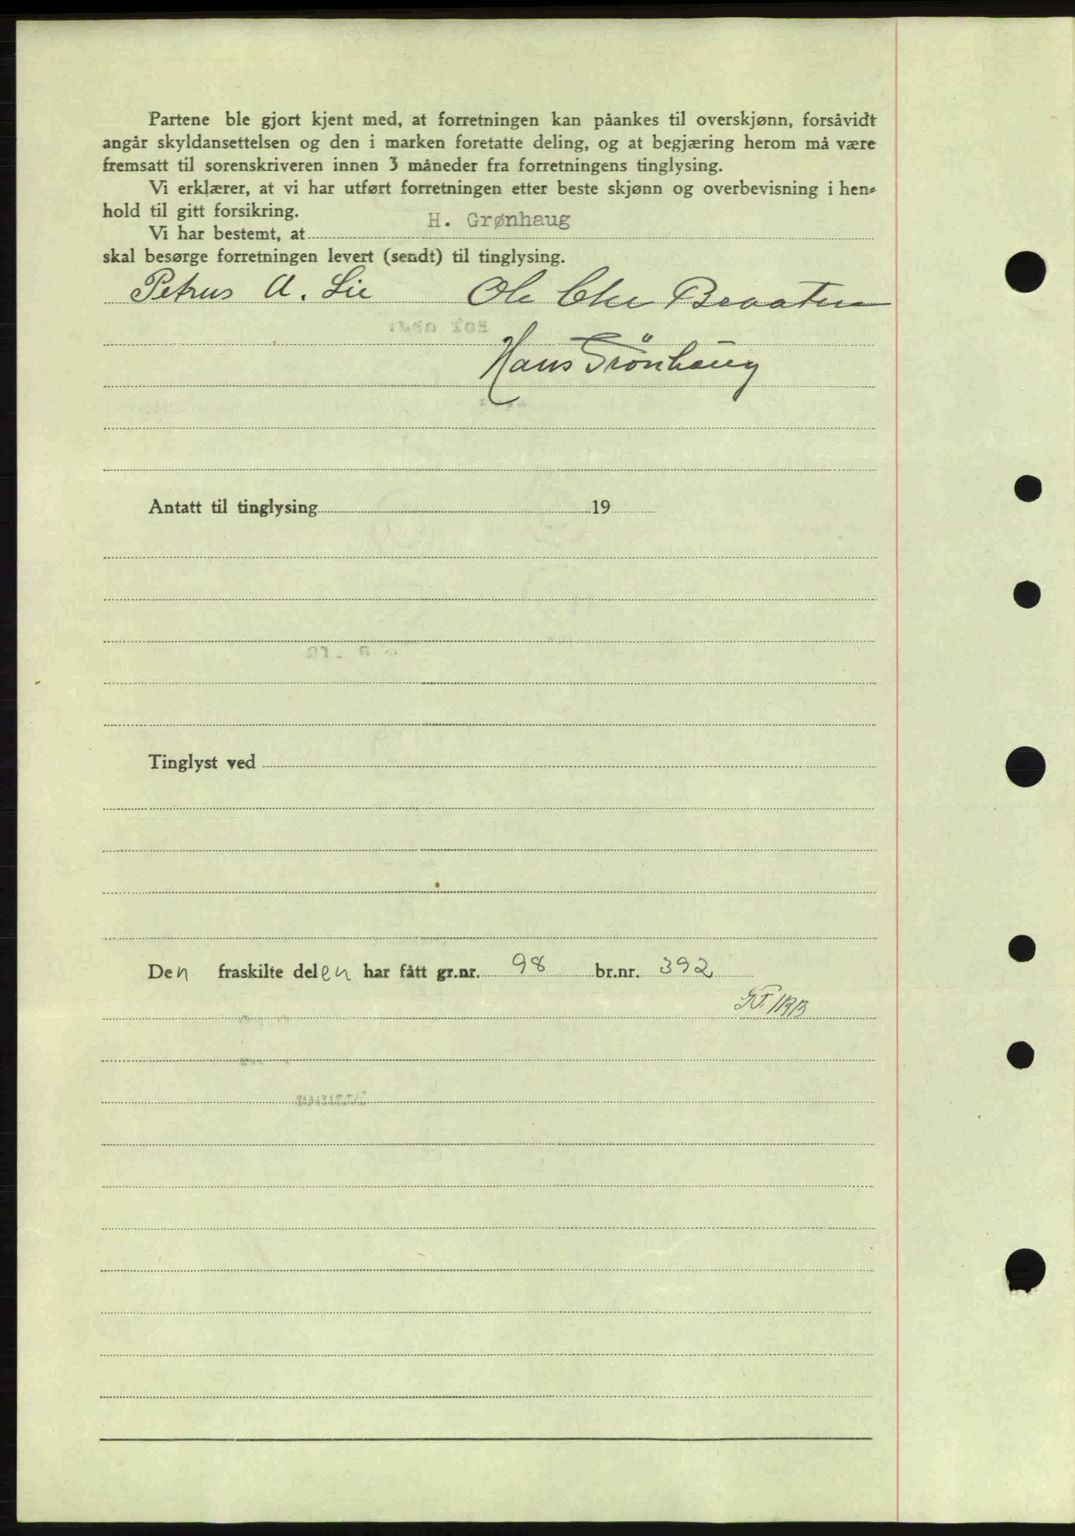 Partene ble gjort kjent med, at forretningen kan påankes til overskjønn, forsåvidt
angår skyldansettelsen og den i marken foretatte deling, og at begjæring herom må være
fremsatt til sorenskriveren innen 3 måneder fra forretningens tinglysing.
Vi erklærer, at vi har utført forretningen etter beste skjønn og overbevisning i hen-
hold til gitt forsikring.
Vi har bestemt, at H. Grønhaug
skal besørge forretningen levert (sendt) til tinglysing.
Petrus A. Lie Ole Chr Braaten
Hans Grönhaug
Antatt til tinglysing 19
Tinglyst ved
Den fraskilte delen har fått gr.nr. 98 br.nr. 392